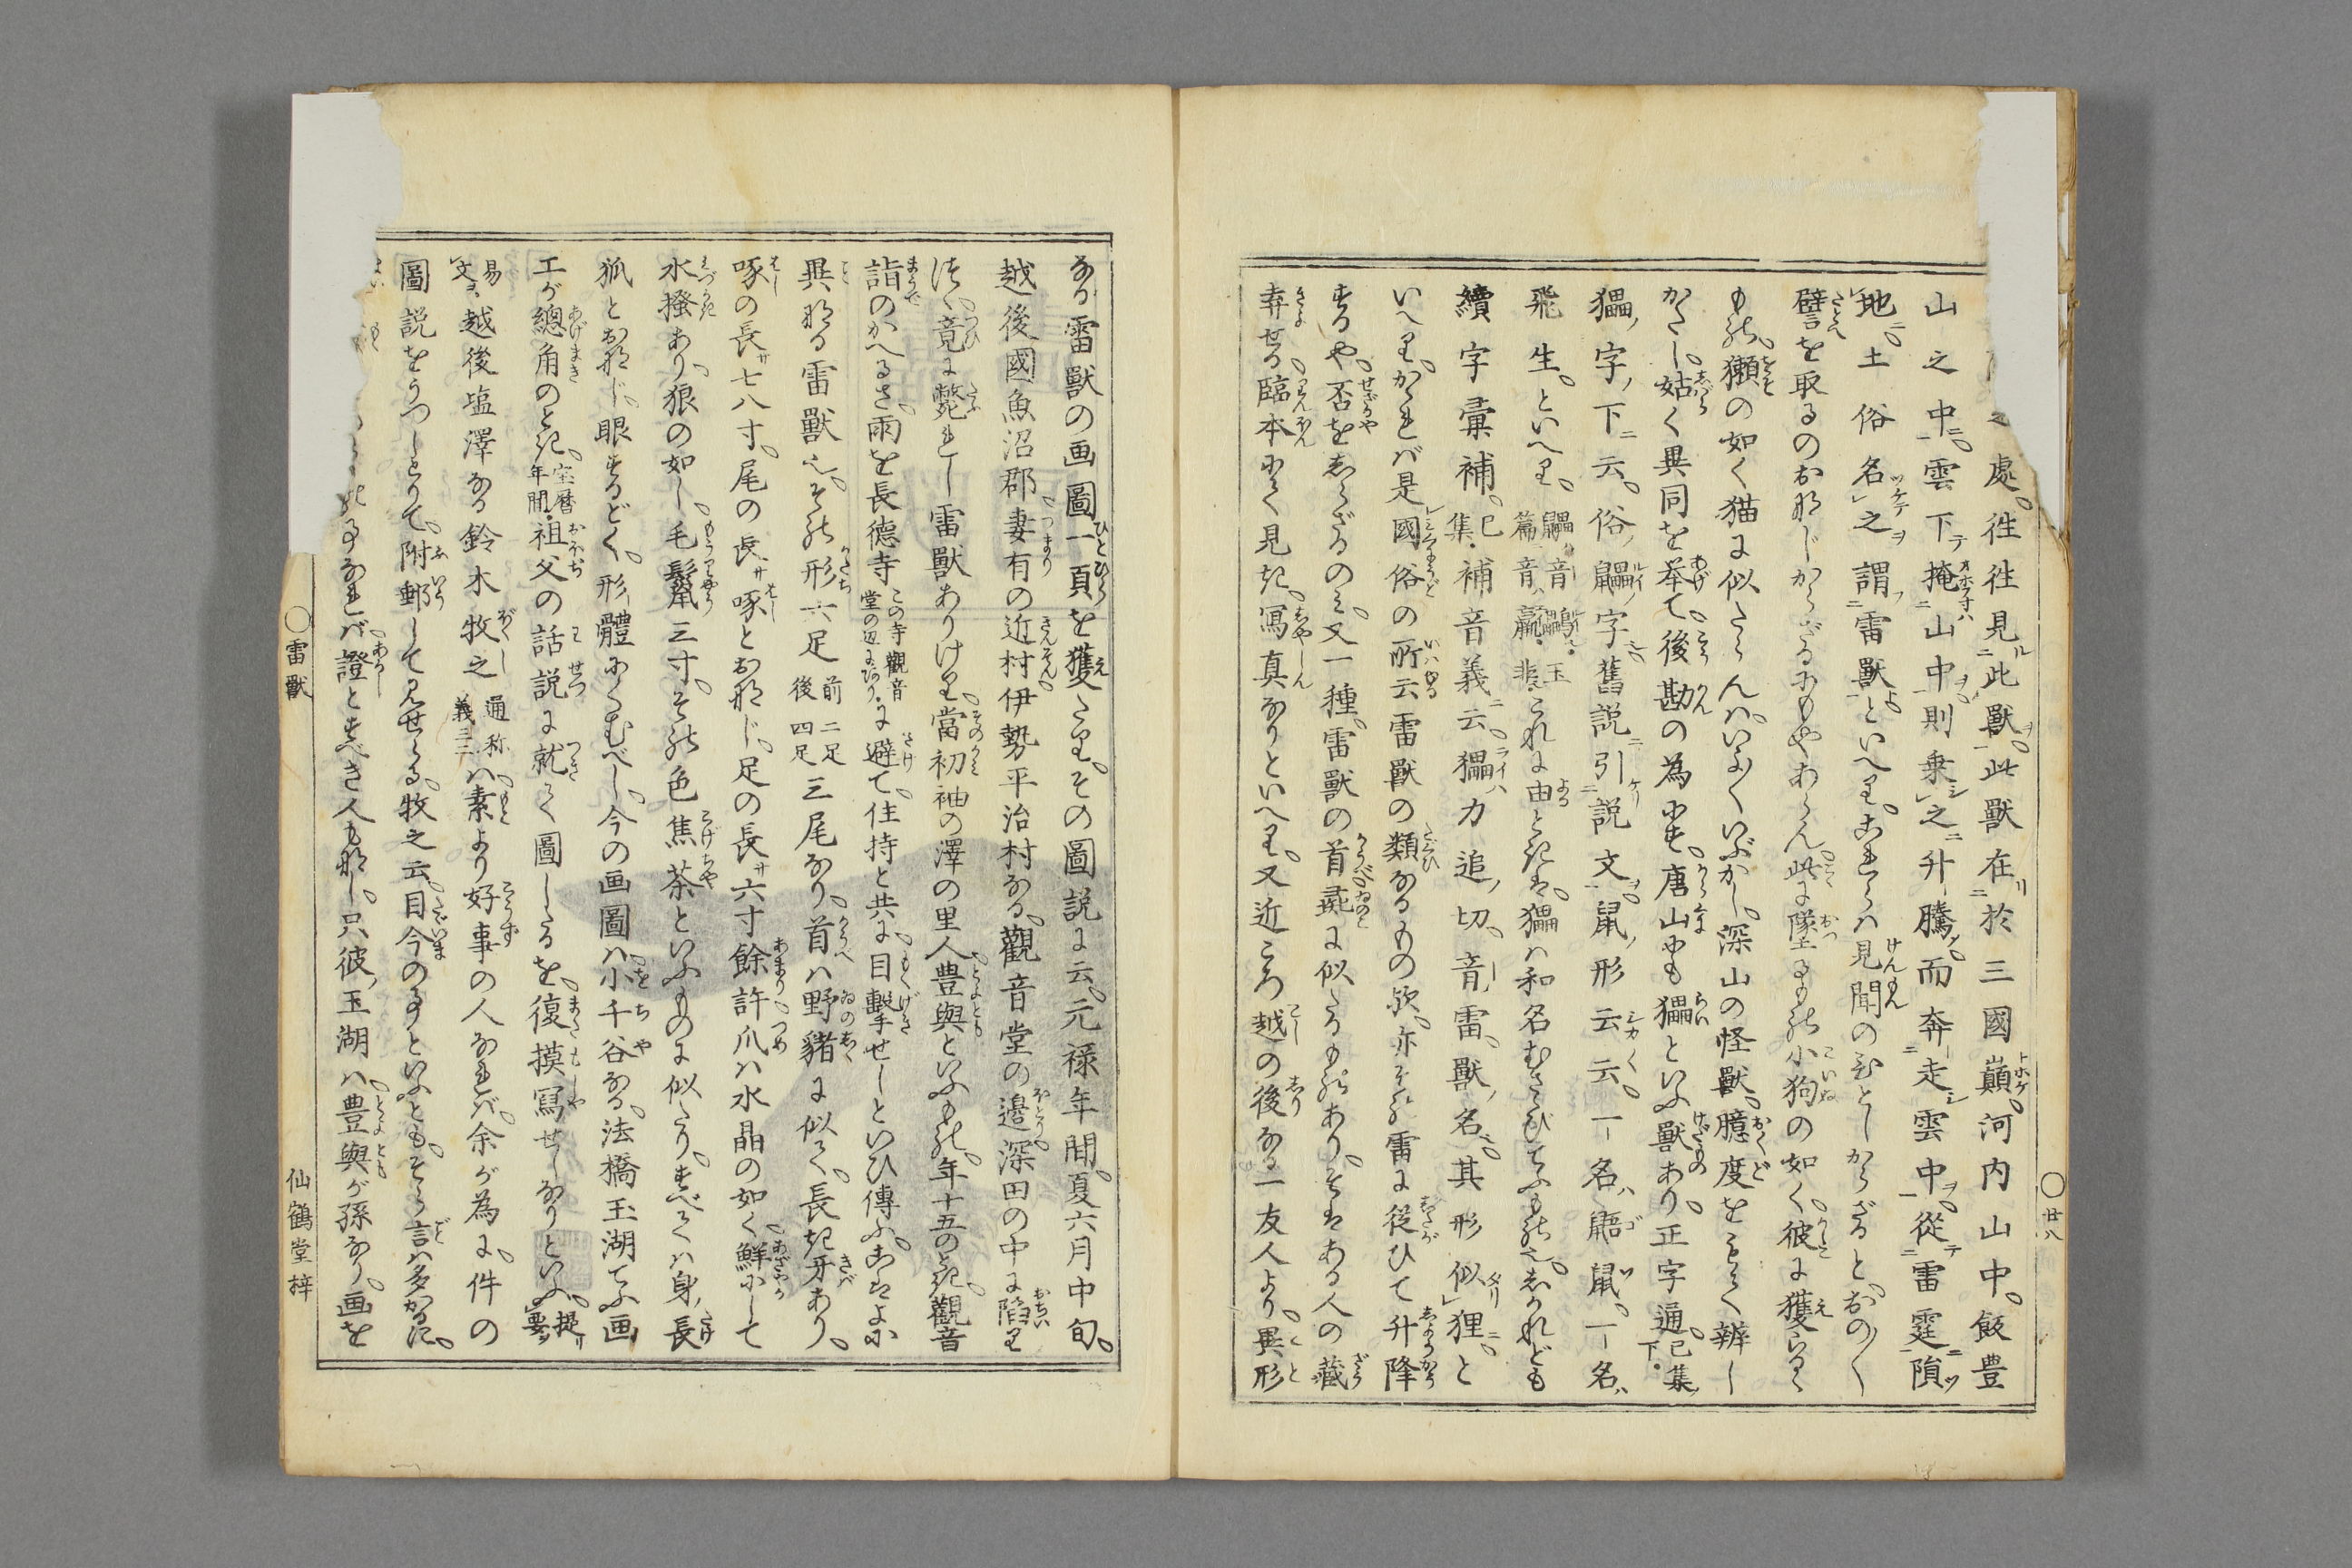 處。徃徃見此獸。此獸在於三國巓。河内山中。飯豊
山之中。雲下掩山中。則乗之升騰。而奔走雲中。從雷霆隕
地。土俗名之謂雷獸。といへり。これらは見聞のひとしからざると。おの〳〵
譬を取るのおなじからざるにもやあらん。此に墜るもの小狗の如く。彼に獲らるゝ
もの。獺の如く猫に似たらんは。いよ〳〵いぶかし。深山の怪獸。臆度をもて辨し
かたし。姑く異同を举て。後勘の為にす。唐山にも㹎といふ獸あり。正字通。巳集下。
字下云。俗字舊説引説文鼠形云云。一名鼯鼠。一名
飛生。といへり。これに由ときは。和名むさゝびてふもの也。しかれども
續字彙補。巳集。補音義云。力追切。音雷。獸名。其形似狸。と
いへり。かゝれば是國俗の所云雷獸の類なるもの歟。亦それ雷に従ひて升降
するや。否をしらざるのみ。又一種。雷獸の首彘に似たるものあり。そはある人の藏
弆せる。臨本にて見き。寫真なりといへり。又近ころ越の後なる一友人より。異形
なる雷獸の画圖一頁を獲たり。その圖説に云。元禄年間。夏六月中旬。
越後國魚沼郡。妻有の近村。伊勢平治村なる。觀音堂の邉。深田の中に陷り
つゝ。竟に斃れし雷獸ありけり。當初袖の澤の里人豊與といふもの。年十五のとき。觀音
詣のかへるさ。雨を長徳寺この寺觀音堂の辺にあり。に避て。住持と共に。目擊せしといひ傳ふ。こはよに
異なる雷獸也。その形六足前二足後四足三尾なり。首は野豬に似て。長き牙あり。
啄の長サ七八寸。尾の長サ啄とおなじ。足の長サ六寸餘許。爪は水晶の如く。鮮にして
水掻あり。狼の如し。毛鬣三寸。その色焦茶といふものに似たり。すべては身ノ長
狐とおなじ。眼するどく。形體にくむべし。今の画圖は。小千谷なる。法橋玉湖てふ画
工が總角のとき。宝暦年間。祖父の話説に就きて圖したるを。復摸寫せしなりといふ。提要
易文。越後塩澤なる鈴木牧之通称義三二は。素より好事の人なれば。余が為に。件の
圖説をうつしとりて。附郵して見せらる。牧之云。目今の事といふとも。そら言は多かるに。
事なれば。證とすべき人もなし。只彼ノ玉湖は。豊與が孫なり。画を
○廿八
○雷獸
仙鶴堂梓